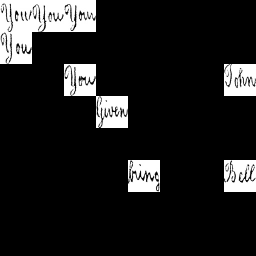 You You You
You
You John
Given
bring Bell